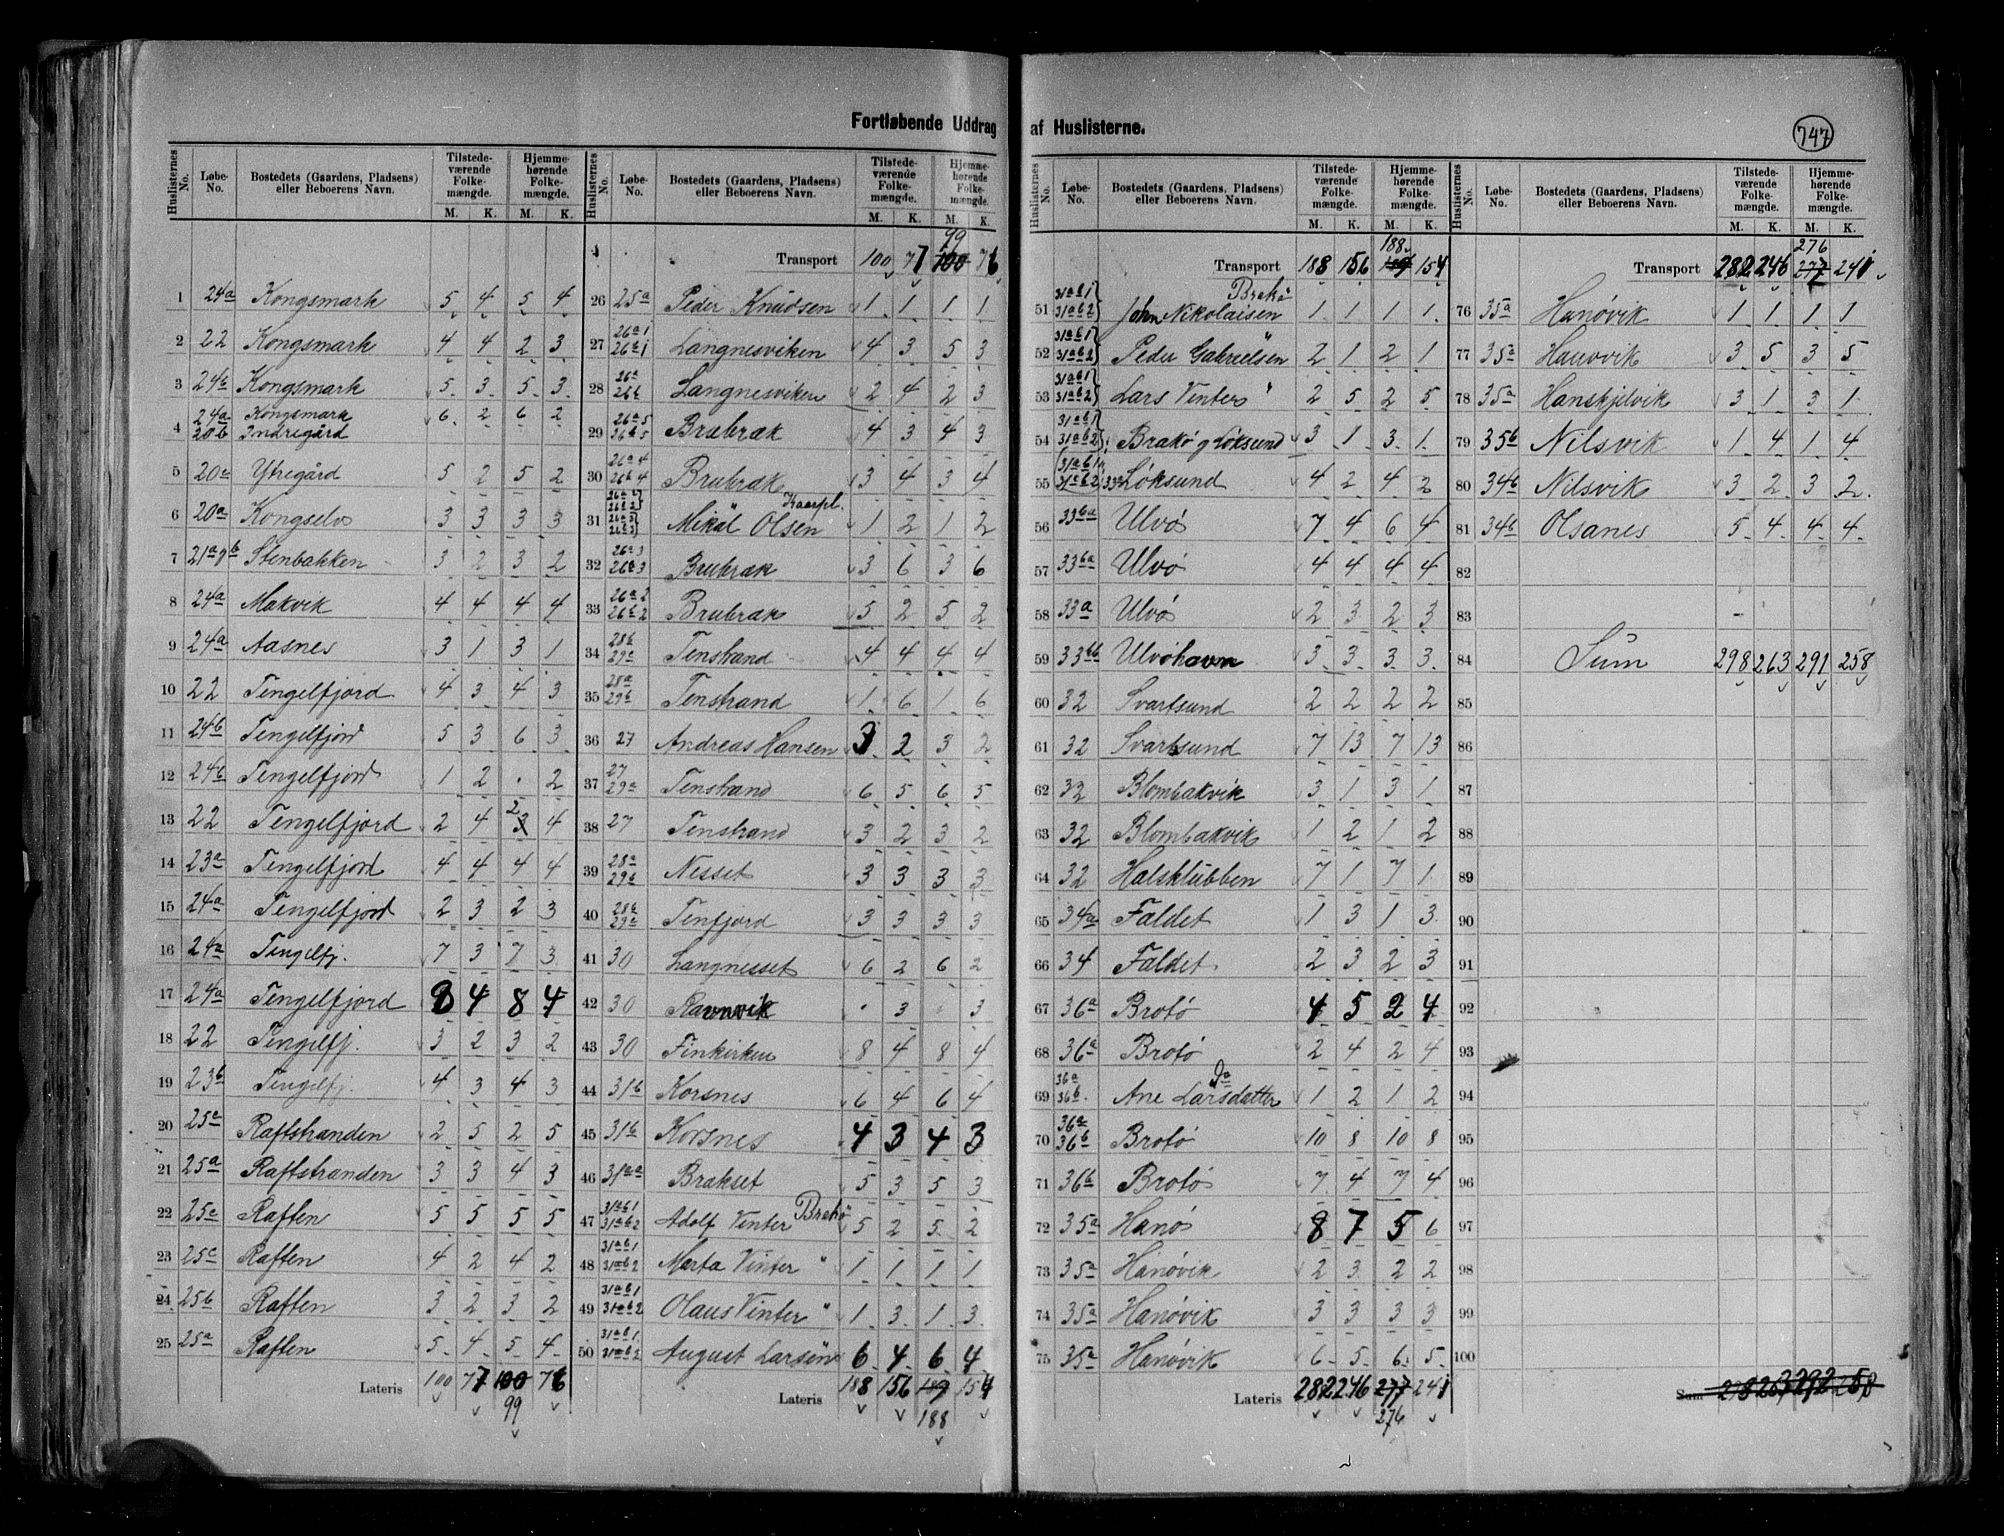 Fortløbende Uddrag af Huslisterne.
747
Huslisternes No. | Løbe-No. | Bostedets (Gaardens, Pladsens) eller Beboerens Navn. | Tilstedeværende Folkemængde. M. K. | Hjemmehørende Folkemængde. M. K.
1 24a Kongsmark 5 4 5 4
2 22 Kongsmark 4 4 2 3
3 24b Kongsmark 5 3 5 3
4 24a 20b Kongsmark Indregård 6 2 6 2
5 20c Ytregård 5 2 5 2
6 20a Kongselv 3 3 3 3
7 21a&b Stenbakken 3 2 3 2
8 24a Makvik 4 4 4 4
9 24a Aasnes 3 1 3 1
10 22 Tengelfjord 4 3 4 3
11 24b Tengelfjord 5 3 6 3
12 24b Tengelfjord 1 2 . 2
13 22 Tengelfjord 2 4 2 3 4
14 23a Tengelfjord 4 4 4 4
15 24a Tengelfjord 2 3 2 3
16 24a Tengelfj. 7 3 7 3
17 24a Tengelfjord 8 4 8 4
18 22 Tengelfj. 3 2 3 2
19 23b Tengelfj. 4 3 4 3
20 25a Raftstranden 2 5 2 5
21 25a Raftstranden 3 3 4 3
22 25a Raften 5 5 5 5
23 25c Raften 4 2 4 2
24 25b Raften 3 2 3 2
25 25a Raften 5 4 5 4
Lateris 100 77 100 76
99
Huslisternes No. | Løbe-No. | Bostedets (Gaardens, Pladsens) eller Beboerens Navn. | Tilstedeværende Folkemængde. M. K. | Hjemmehørende Folkemængde. M. K.
99
Transport 100 77 100 76
26 25a Peder Knudsen 1 1 1 1
27 26a1 26b1 Langnesviken 4 3 5 3
28 26a 26b Langnesviken 2 4 2 3
29 26a5 26b5 Brabrak 4 3 4 3
30 26a4 26b4 Brubrak 3 4 3 4
31 26a2 26b2 26a3 26b3 Mikal Olsen 1 2 1 2
32 26a3 26b3 Brubrak 3 6 3 6
33 26a2 26b2 Brubrak 5 2 5 2
34 28b 29a Tenstrand 4 4 4 4
35 28a 29b Tenstrand 1 6 1 6
36 27 Andreas Hansen 3 2 3 2
37 27 29a Tenstrand 6 5 6 5
38 27 Tenstrand 3 2 3 2
39 28a 29b Nesset 3 3 3 3
40 28b 29a Tenfjord 3 3 3 3
41 30 Langnesset 6 2 6 2
42 30 Ravnvik . 3 3
43 30 Finkirken 8 4 8 4
44 31b Korsnes 6 4 6 4
45 31b Korsnes 4 3 4 3
46 31aa Brakset 5 3 5 3
47 31ab1 31ab2 Adolf Vinter Brakö 5 2 5 2
48 31ab1 31ab2 Marta Vinter " 1 1 1 1
49 31ab1 31ab2 Olaus Vinter " 1 3 1 3
50 31ab1 31ab2 August Larsen 6 4 6 4
Lateris 188 156 189 154
188
Huslisternes No. | Løbe-No. | Bostedets (Gaardens, Pladsens) eller Beboerens Navn. | Tilstedeværende Folkemængde. M. K. | Hjemmehørende Folkemængde. M. K.
188
Transport 188 156 189 154
51 31ab1 31ab2 John Nikolaisen Brakö 1 1 1 1
52 31ab1 31ab2 Peder Gabrielsen " 2 1 2 1
53 31ab1 31ab2 Lars Vinter " 2 5 2 5
54 31ab1 31ab2 Brakö g Löksund 3 1 3 1
55 31ab1 31ab2 33a Löksund 4 2 4 2
56 33ba Ulvö 7 4 6 4
57 33ba Ulvö 4 4 4 4
58 33a Ulvö 2 3 2 3
59 33bb Ulvöhavn 3 3 3 3
60 32 Svartsund 2 2 2 2
61 32 Svartsund 7 13 7 13
62 32 Blombakvik 3 1 3 1
63 32 Blombakvik 1 2 1 2
64 32 Halsklubben 7 1 7 1
65 34a Faldet 1 3 1 3
66 34 Faldet 2 3 2 3
67 36a Brotö 4 5 2 4
68 36a Brotö 2 4 2 4
69 36a 36b Ane Larsdatter Da 1 2 1 2
70 36a 36b Brotö 10 8 10 8
71 36b Brotö 7 4 7 4
72 35a Hanö 8 7 5 6
73 35a Hanövik 2 3 2 2
74 35a Hanövik 3 3 3 3
75 35a Hanövik 6 5 6 5
Lateris 282 246 277 241
276
Huslisternes No. | Løbe-No. | Bostedets (Gaardens, Pladsens) eller Beboerens Navn. | Tilstedeværende Folkemængde. M. K. | Hjemmehørende Folkemængde. M. K.
276
Transport 282 246 277 241
76 35a Hanövik 1 1 1 1
77 35a Hanövik 3 5 3 5
78 35a Hanskjelvik 3 1 3 1
79 35b Nilsvik 1 4 1 4
80 34b Nilsvik 3 2 3 2
81 34b Olsanes 5 4 4 4
82
83
84 Sum 298 263 291 258
85
86
87
88
89
90
91
92
93
94
95
96
97
98
99
100
Sum 298 263 292 258